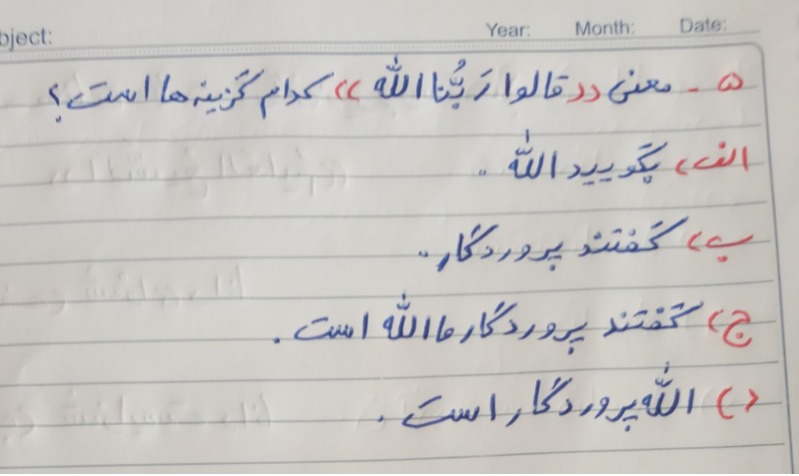 bject: Year: Month: Date:
۵ - معنی «قالوا رَبُّنا الله» کدام گزینه ها است؟
الف) بگویید الله ..
ب) گفتند پروردگار..
ج) گفتند پروردگار ما الله است.
د) الله پروردگار است.